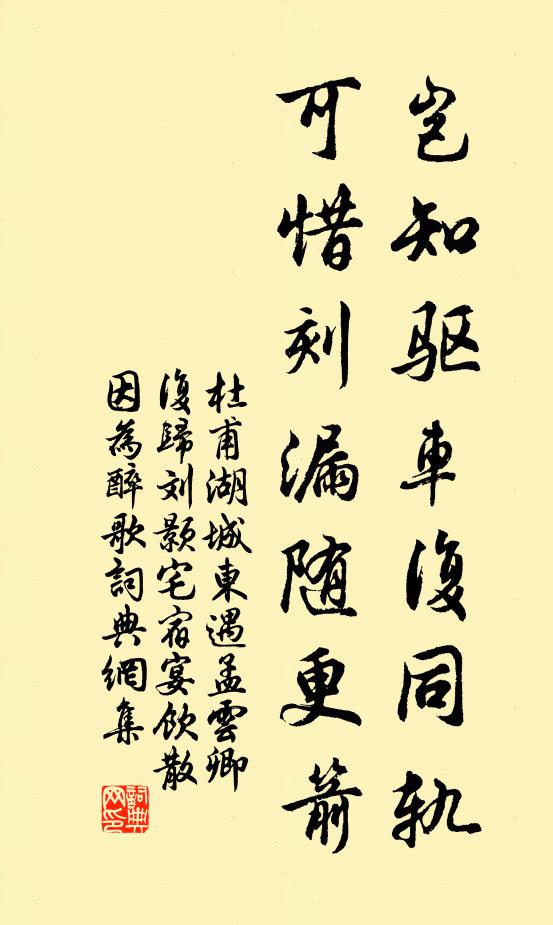 岂知驱車復同軌
可惜刻漏随更箭
杜甫湖城東遇孟雲卿
復歸刘颢宅宿宴飲散
因為醉歌詞典網集
詞典
网印